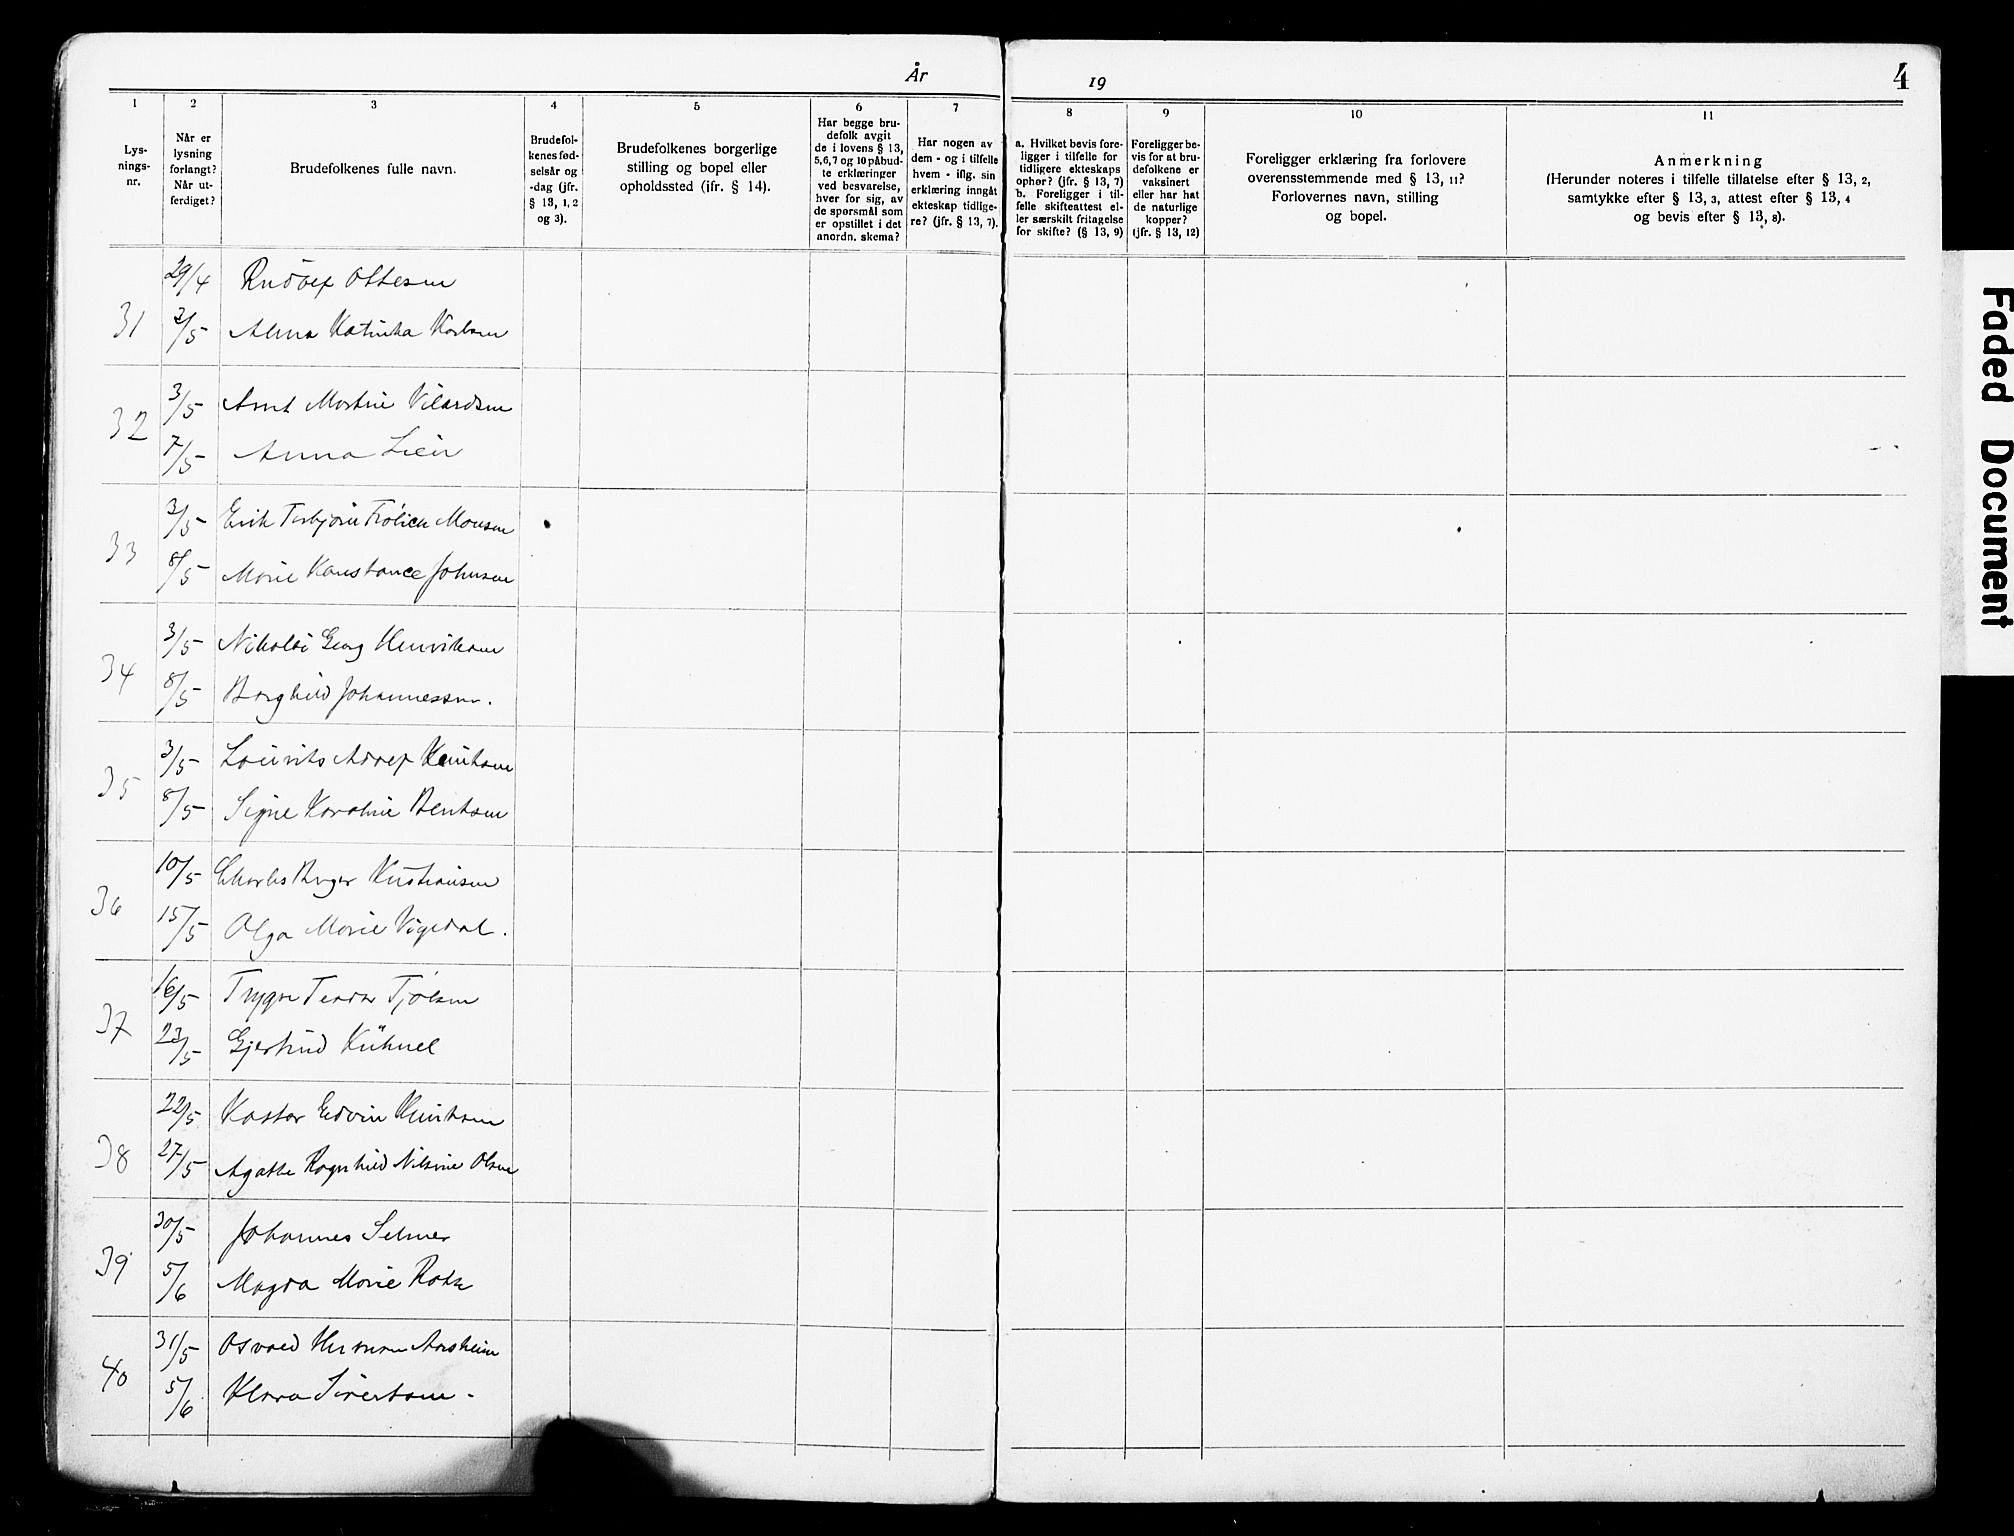 År 19
4
1
Lysnings-
nr.
2
Når er
lysning
forlangt?
Når ut-
ferdiget?
3
Brudefolkenes fulle navn.
4
Brudefol-
kenes fød-
selsår og
-dag (jfr.
§ 13, 1, 2
og 3).
5
Brudefolkenes borgerlige
stilling og bopel eller
opholdssted (ifr. § 14).
6
Har begge bru-
defolk avgit
de i lovens § 13,
5, 6, 7 og 10 påbud-
te erklæringer
ved besvarelse,
hver for sig, av
de spørsmål som
er opstillet i det
anordn. skema?
7
Har nogen av
dem - og i tilfelle
hvem - iflg. sin
erklæring inngåt
ekteskap tidlige-
re? (jfr. § 13, 7).
8
a. Hvilket bevis fore-
ligger i tilfelle for
tidligere ekteskaps
ophør? (jfr. § 13, 7)
b. Foreligger i til-
felle skifteattest el-
ler særskilt fritagelse
for skifte? (§ 13, 9)
9
Foreligger be-
vis for at bru-
defolkene er
vaksinert
eller har hat
de naturlige
kopper?
(jfr. § 13, 12)
10
Foreligger erklæring fra forlovere
overensstemmende med § 13, 11?
Forlovernes navn, stilling
og bopel.
11
Anmerkning
(Herunder noteres i tilfelle tillatelse efter § 13, 2,
samtykke efter § 13, 3, attest efter § 13, 4
og bevis efter § 13, 8).
31
29/4 Rudolf Ottesen
2/5 Alma Katinka Karlsen
32
3/5 Arnt Martin Vilardsen
7/5 Anna Lien
33
3/5 Erik Torbjørn Frölich Monsen
8/5 Marie Konstance Johnsen
34
3/5 Nikolai Georg Henriksen
8/5 Borghild Johannessen.
35
3/5 Lauritz Adolf
8/5 Signe Karoline Bentsen
36
10/5 Charles Birger Kristiansen
15/5 Olga Marie Vigedal.
37
16/5 Trygve Tjølsen
23/5 Gjertrud Kühnel
38
22/5 Kastor Edvin Knutsen
27/5 Agathe Ragnhild Nilsine Olsen
39
30/5 Johannes Selmer
5/6 Magda Marie
40
31/5 Osvald Herman Aarsheim
5/6 Klara Sivertsen -
Faded Document